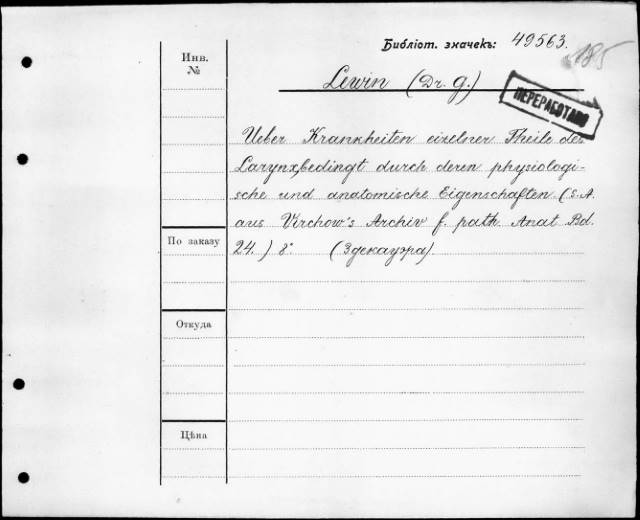 Библіот. значекъ: 49563.
185
Инв.
№
Lewin (Dr. G.)
ПЕРЕРАБОТАНО
Ueber Krankheiten eizelner Theile des
Larynx, bedingt durch deren physiologi-
sche und anatomische Eigenschaften. (S.A.
aus Virchow's Archiv f. path. Anat Bd.
По заказу
24.) 8° (Здекауэра).
Откуда
Цѣна